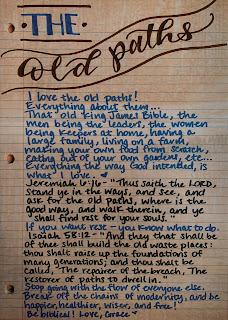 ·THE·
Old paths
I love the old paths!
Everything about them...
That Old King James Bible, the
men being the leaders, the women
being keepers at home, having a
large family, living on a farm,
making your own food from scratch,
eating out of your own gardens, etc...
Everything the way God intended, is
what I love.
Jeremiah 6:16- "Thus saith the LORD,
Stand ye in the ways, and see, and
ask for the old paths, where is the
good way, and walk therein, and ye
shall find rest for your souls."
If you want rest - you know what to do.
Isaiah 58:12- "And they that shall be
of thee shall build the old waste places:
thou shalt raise up the foundations of
many generations; and thou shalt be
called, The repairer of the breach, The
restorer of paths to dwell in."
Stop going with the flow of everyone else.
Break off the chains of modernity, and be
happier, healthier, wiser, and free!
Be biblical! Love, Grace